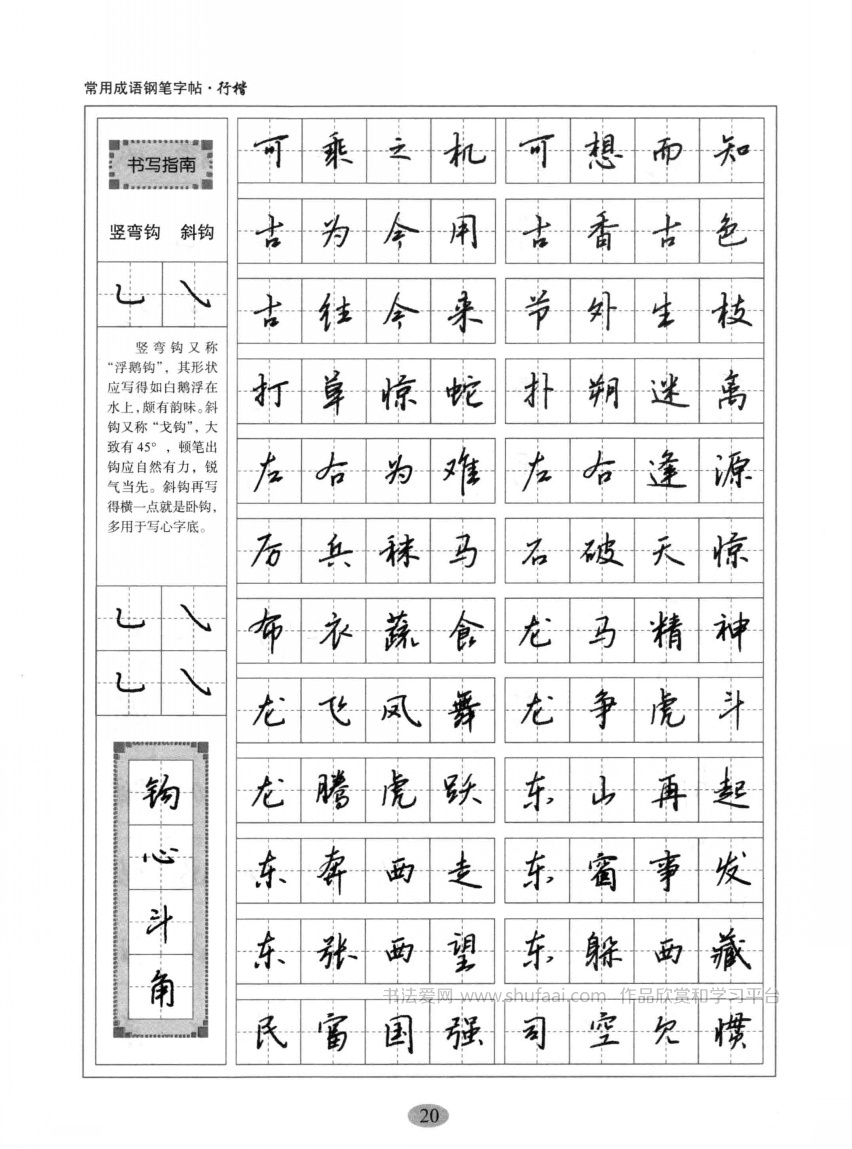 常用成语钢笔字帖·行楷
书写指南
竖弯钩 斜钩
乚 ㇂
竖弯钩又称
“浮鹅钩”，其形状
应写得如白鹅浮在
水上，颇有韵味。斜
钩又称“戈钩”，大
致有45°，顿笔出
钩应自然有力，锐
气当先。斜钩再写
得横一点就是卧钩，
多用于写心字底。
乚 ㇂
乚 ㇂
钩心斗角
可乘之机 可想而知
古为今用 古香古色
古往今来 节外生枝
打草惊蛇 扑朔迷离
左右为难 左右逢源
厉兵秣马 石破天惊
布衣蔬食 龙马精神
龙飞凤舞 龙争虎斗
龙腾虎跃 东山再起
东奔西走 东窗事发
东张西望 东躲西藏
民富国强 司空见惯
书法爱网 www.shufaai.com 作品欣赏和学习平台
20